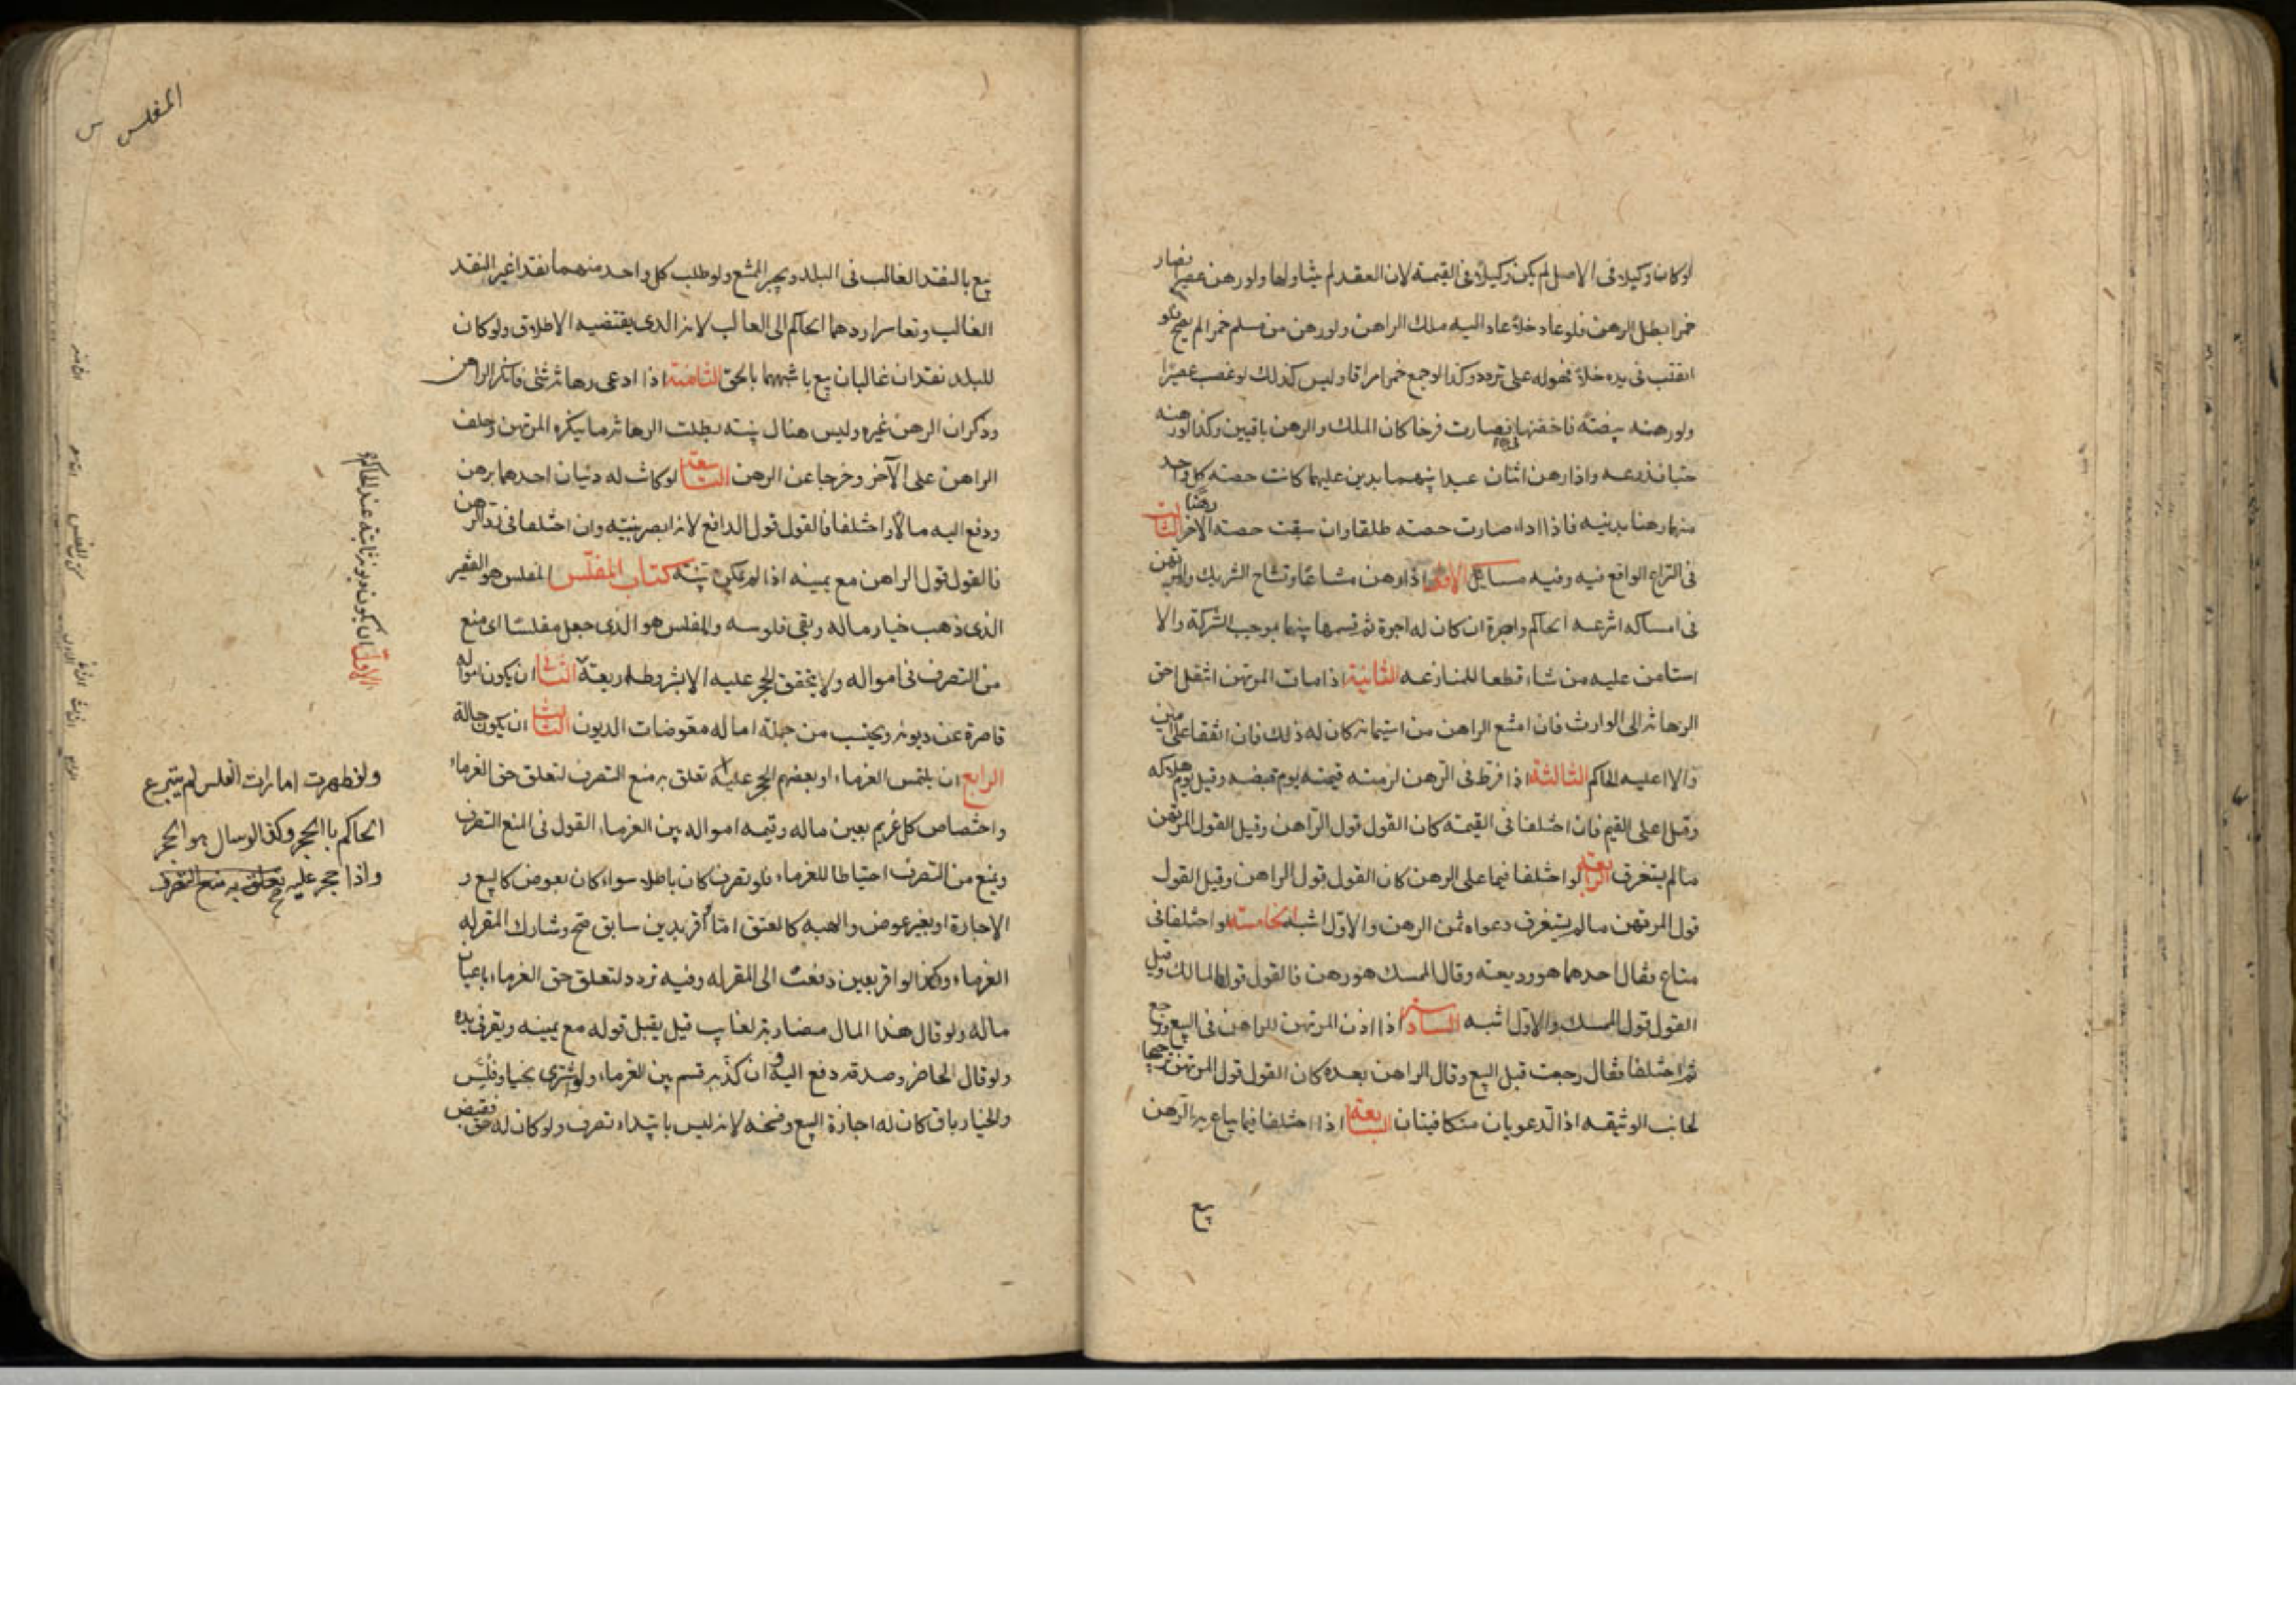 لو كان وكيلا فى الاصل لم يكن وكيلا فى القيمة لان العقد لم يتناولها ولو رهن عصيرا فصار
خمرا بطل الرهن فلو عاد خلا عاد اليه ملك الراهن ولو رهن من مسلم خمرا لم يصح فلو
انقلب فى يده خلا فهو له على تردد وكذا لو جمع خمرا مراقا وليس كذلك لو غصب عصيرا
ولو رهنه بيضة فاحضنها فصارت فرخا كان الملك والرهن باقيين وكذا لو رهنه
حبا فزرعه واذا رهن اثنان عبدا بينهما بدين عليهما كانت حصة كل واحد
منهما رهنا بدينه فاذا اداه صارت حصته طلقا وان بقيت حصة الآخر رهنا الثالث
فى النزاع الواقع فيه وفيه مسائل الاولى اذا رهن مشاعا وتشاح الشريك والمرتهن
فى امساكه انتزعه الحاكم واجره ان كان له اجرة ثم قسمها بينهما بموجب الشركة والا
استأمن عليه من شاء قطعا للمنازعه الثانية اذا مات المرتهن انتقل حق
الرهانة الى الوارث فان امتنع الراهن من استيمانه كان له ذلك فان اتفقا على امين
والا عليه الحاكم الثالثة اذا فرط فى الرهن لزمته قيمته يوم قبضه وقيل يوم هلاكه
وقيل اعلى القيم فان اختلفا فى القيمة كان القول قول الراهن وقيل القول المرتهن
ما لم يستغرق الرابعة لو اختلفا فيما على الرهن كان القول قول الراهن وقيل القول
قول المرتهن ما لم يستغرق دعواه ثمن الرهن والاول اشبه الخامسة لو اختلفا فى
متاع فقال احدهما هو وديعة وقال الممسك هو رهن فالقول قول المالك وقيل
القول قول الممسك والاول اشبه السادسة اذا اذن المرتهن للراهن فى البيع ورجع
ثم اختلفا فقال رجعت قبل البيع وقال الراهن بعده كان القول قول المرتهن ترجيحا
لجانب الوثيقه اذ الدعويان متكافيتان السابعة اذا اختلفا فيما يباع به الرهن
بيع
المفلس
بيع بالنقد الغالب فى البلد ويجبر الممتنع ولو طلب كل واحد منهما نقدا غير النقد
الغالب وتعاسرا ردهما الحاكم الى الغالب لانه الذى يقتضيه الاطلاق ولو كان
للبلد نقدان غالبان بيع باشبههما بالحق الثامنة اذا ادعى رهانة شئ فانكر الراهن
وذكر ان الرهن غيره وليس هناك بينه بطلت الرهانة ما ينكره المرتهن وحلف
الراهن على الآخر وخرجا عن الرهن التاسعة لو كان له دينان احدهما برهن
ودفع اليه مالا واختلفا فالقول قول الدافع لانه ابصر بنيته وان اختلفا فى رد الرهن
فالقول قول الراهن مع يمينه اذا لم يكن بينه كتاب المفلس المفلس هو الفقير
الذى ذهب خيار ماله وبقى فلوسه والمفلس هو الذى جعل مفلسا اى منع
من التصرف فى امواله ولا يتحقق الحجر عليه الا بشروط اربعة الثانى ان يكون امواله
قاصرة عن ديونه ويحتسب من جملة امواله معوضات الديون الثالث ان يكون حالة
الرابع ان يلتمس الغرماء او بعضهم الحجر عليه تعلق به منع التصرف لتعلق حق الغرماء
واختصاص كل غريم بعين ماله وقسمة امواله بين الغرماء القول فى المنع التصرف
ويمنع من التصرف احتياطا للغرماء فلو تصرف كان باطلا سواء كان بعوض كالبيع و
الاجارة او بغير عوض والهبه كالعتق اما لو اقر بدين سابق صح وشارك المقر له
الغرماء وكذا لو اقر بعين دفعت الى المقر له وفيه تردد لتعلق حق الغرماء باعيان
ماله ولو قال هذا المال مضاربة لغايب قيل يقبل قوله مع يمينه ويقر فى يده
ولو قال لحاضر وصدقه دفع اليه وان كذبه قسم بين الغرماء ولو اشترى بخيار وفلس
والخيار باق كان له اجازة البيع وفسخه لانه ليس بابتداء تصرف ولو كان له حق فقبض
الاول ان يكون ديونه ثابتة عند الحاكم
ولو ظهرت امارات الفلس لم يتبرع
الحاكم بالحجر وكذا لو سال هو الحجر
واذا حجر عليه تعلق به منع التصرف